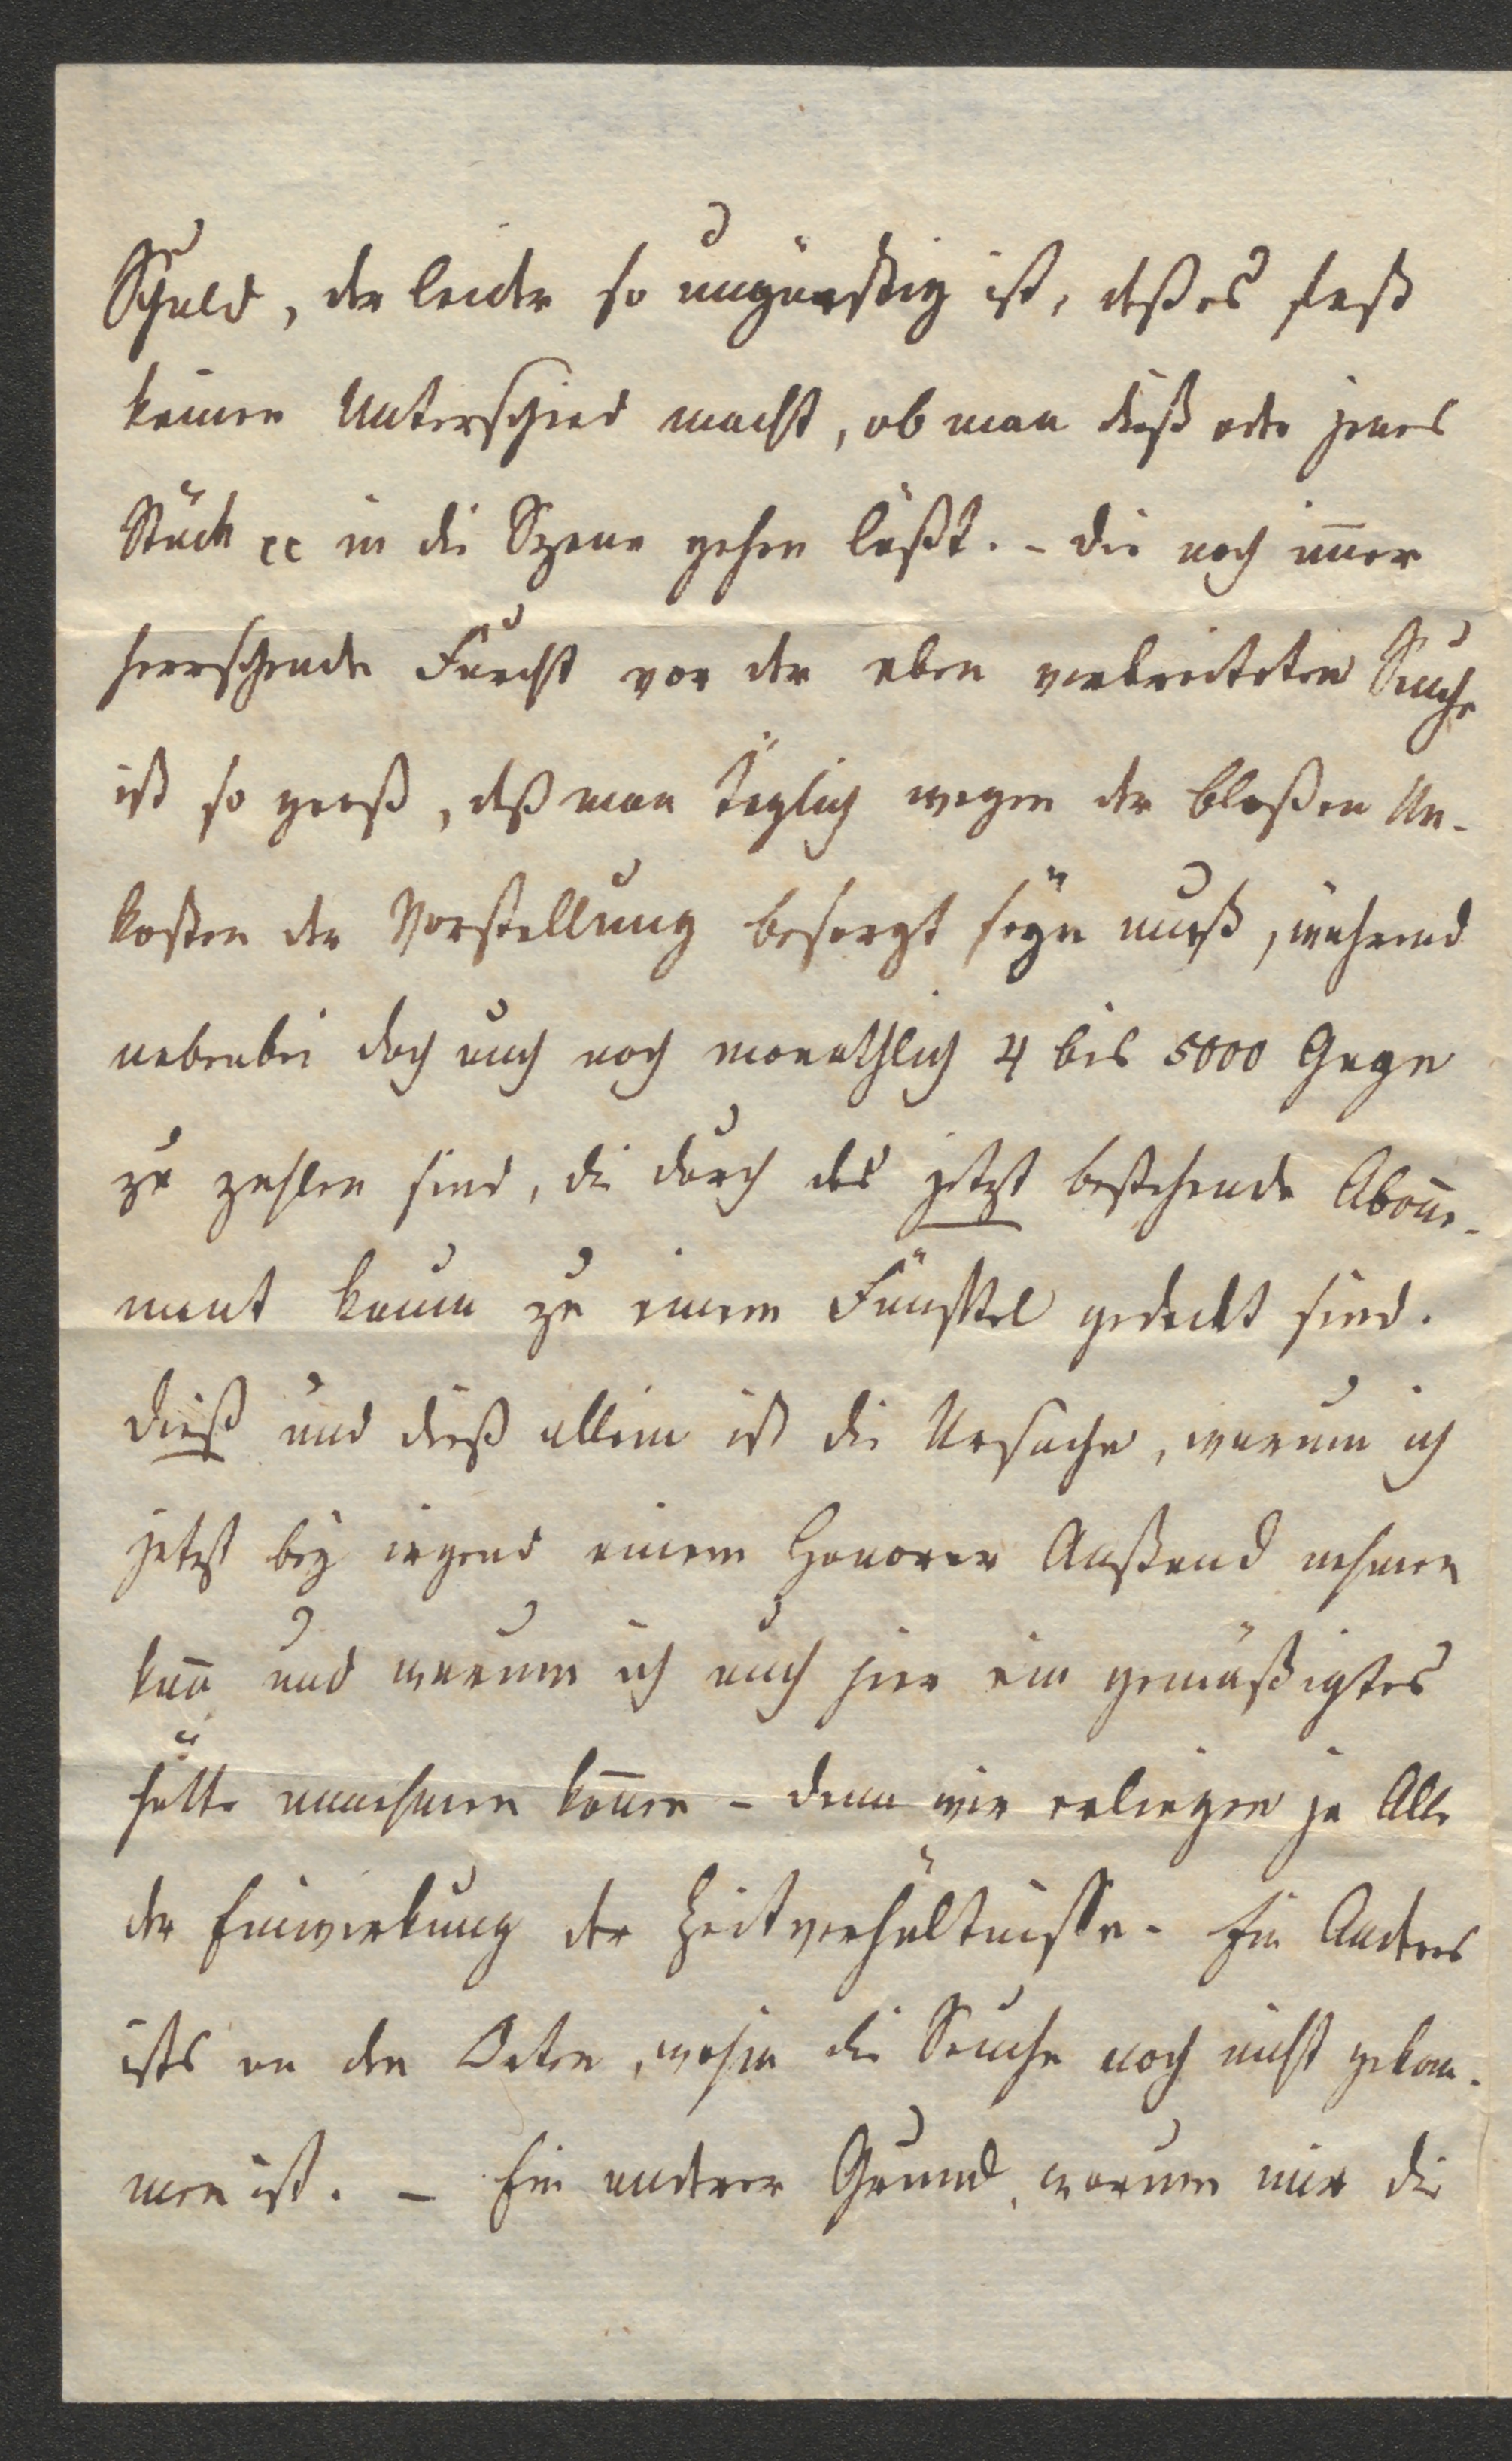 Schuld, der leider so ungünstig ist, daß es fast
keinen Unterschied macht, ob man dieß oder jenes
Stück cc in die Szene gehen läßt. – Die noch im̅er
herrschende Furcht vor der eben verbreiteten Seuche
ist so groß, daß man täglich wegen der bloßen Un-
kosten der Vorstellung besorgt seÿn muß, während
nebenbei doch auch noch monathlich 4 bis 5000 Gage
zu zahlen sind, die durch das jetzt bestehende Abon̅e-
ment kaum zu einem Fünftel gedeckt sind.
Dieß und dieß allein ist die Ursache, warum ich
jetzt beÿ irgend einem Honorar Anstand nehmen
kan̅ und warum ich auch hier ein gemäßigtes
hätte annehmen kön̅en – denn wir erliegen ja Alle
der Einwirkung der Zeitverhältnisse. Ein Anders
ists an den Orten, wohin die Seuche noch nicht gekom-
men ist. – Ein anderer Grund, warum mir die